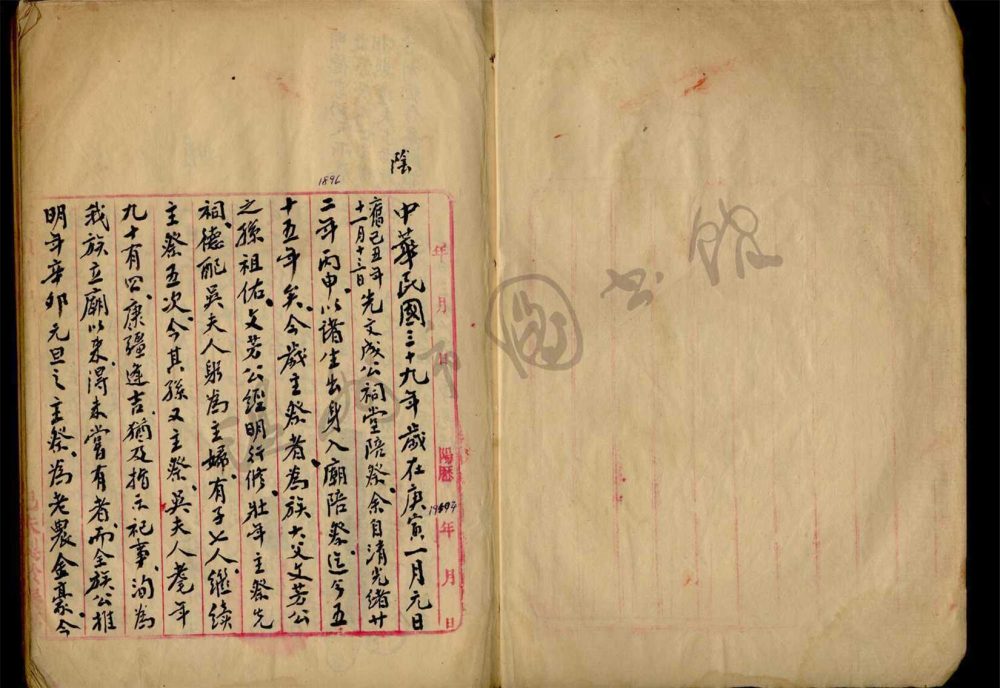 陰
年 月 日
陽曆 19 年 月 日
中華民國三十九年歲在庚寅一月元日
舊己丑年十一月十三日先文成公祠堂陪祭余自清光緒廿
1896
二年丙申以諸生出身入廟陪祭迄今五
十五年矣今歲主祭者為族大父文芳公
之孫祖佑文芳公經明行修壯年主祭先
祠德配吳夫人躬為主婦有子七人繼續
主祭五次今其孫又主祭吳夫人耄年
九十有四康疆逢吉猶及指示祀事洵為
我族立廟以來得未嘗有者而全族公推
明年辛卯元旦之主祭為老農金豪今
圖書館